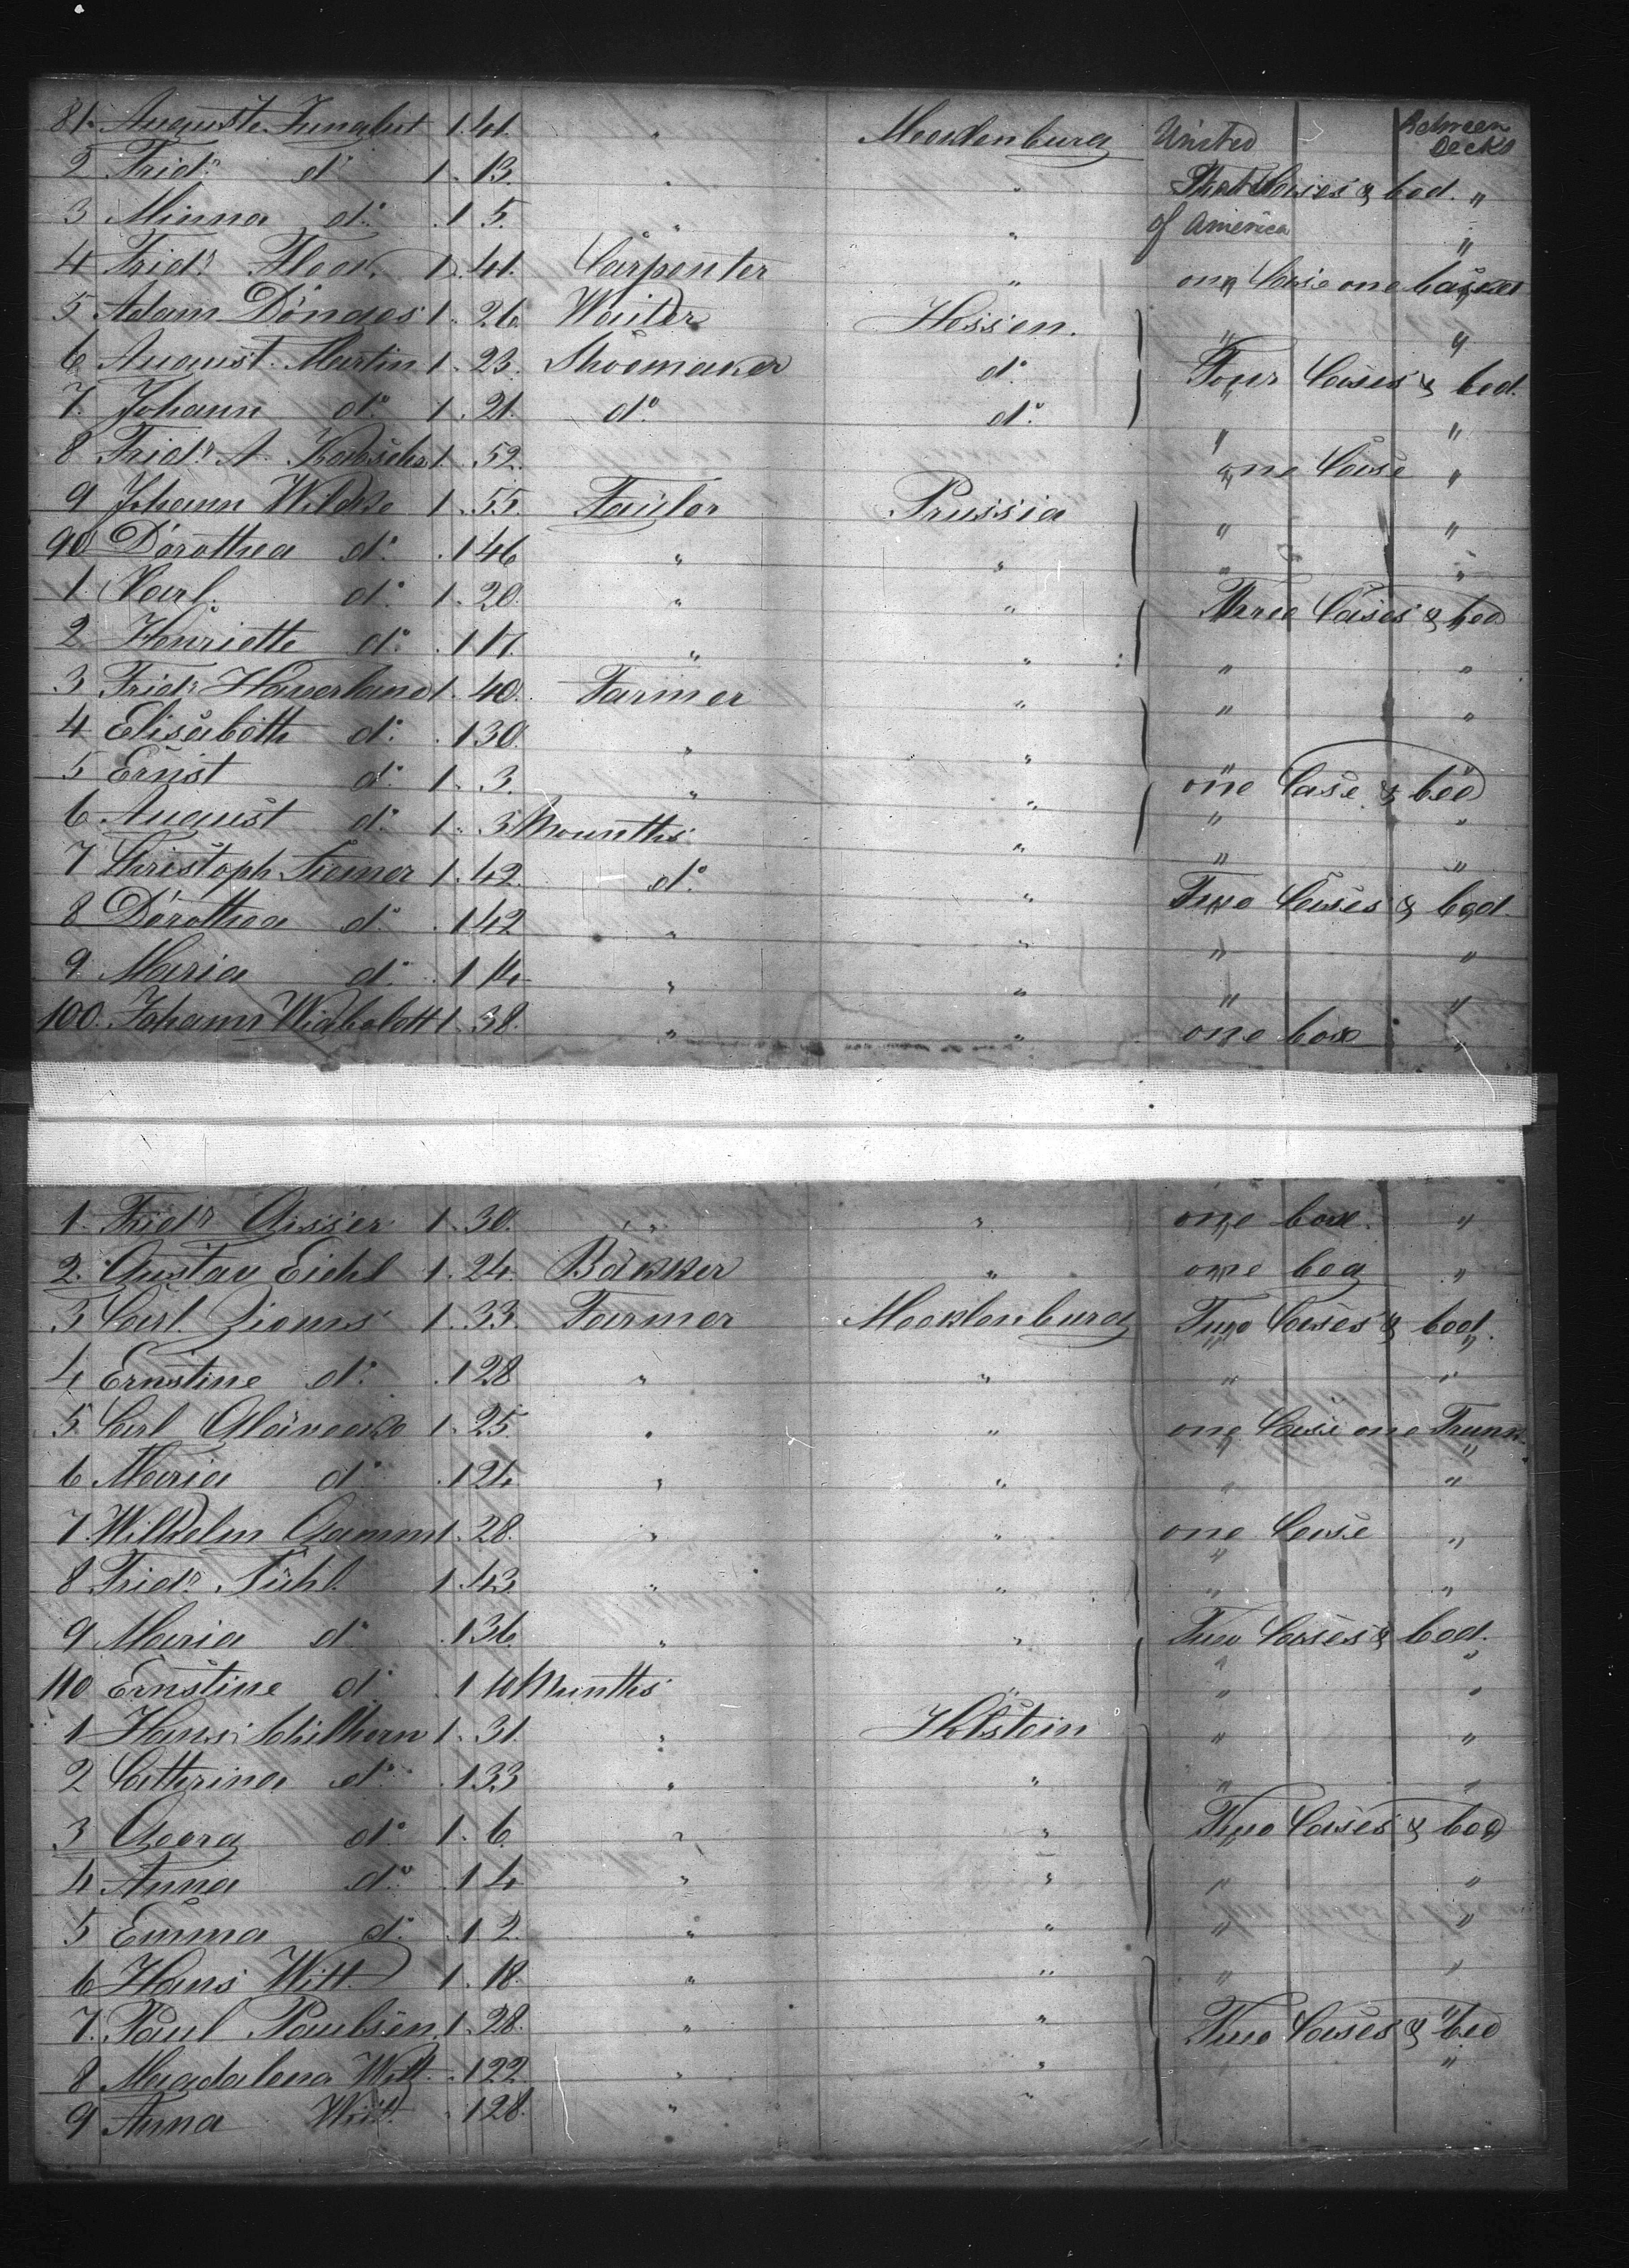 81. Auguste Junghut 1 41. " Mecklenburg United Between Decks
2 Fridr. do 1. 13. " " States Cases & bed. "
3 Minna do. .1 5. " " of America "
4 Fridr. Flock 1. 41. Carpenter " one Case one basket
5 Adam Dönges 1. 26. Waiter Hessen. " "
6 August Martin 1. 23. Shoemaker do. Four Cases & bed.
7. Johann do. 1. 21. do. do. " "
8 Fridr. A. 1. 52. one Case "
9 Johann Wildke 1. 55. Taylor Prussia " "
90 Dorothea do. .1 46 " " " "
1. Carl do. 1. 20. " " Three Cases & bed
2 Henriette do. .1 17. " " " "
3 Fridr. Hauerland 1. 40. Farmer " " "
4 Elisabeth do. .1 30. " "
5 Ernst do. 1. 3. " " one Case & bed
6 August do. 1. 3 Mounths " " "
7 Christoph Siemer 1. 42. do. " Two Cases & bed.
8 Dorothea do. .1 42 " " " "
9. Maria do. .1 14 " " " "
100. Johann 1. 38. " " one box "
1. Fridr. Gisser 1. 30. " " one box. "
2. Gustav Eichl 1. 24. Bakker " one beg "
3 Carl Zioms 1. 33. Farmer Mecklenburg Two Cases & bed.
4 Ernstine do. .1 28 " " " "
5. Carl 1. 25. " " one Case one Trunk
6 Maria do .1 24. " " " "
7. Wilhelm Gamm 1. 28. " " one Case "
8 Fridr. Sühl 1. 43 " " " "
9 Maria do .1 36. " " Two Cases & bed.
110 Ernstine do .1 10 Munths " " "
1 Hans Schilhorn 1. 31. " Holstein " "
2 Catherina do .1 33 " " " "
3 Georg do. 1. 6. " " Two Cases & bed
4 Anna do. .1 4 " " " "
5 Emma do. .1 2. " " " "
6 Hans Witt 1. 18. " " " "
7. Paul Paulsen 1. 28. " " Two Cases & bed
8 Magdalena Witt. .1 22. " " "
9 Anna Witt. .1 28. " "